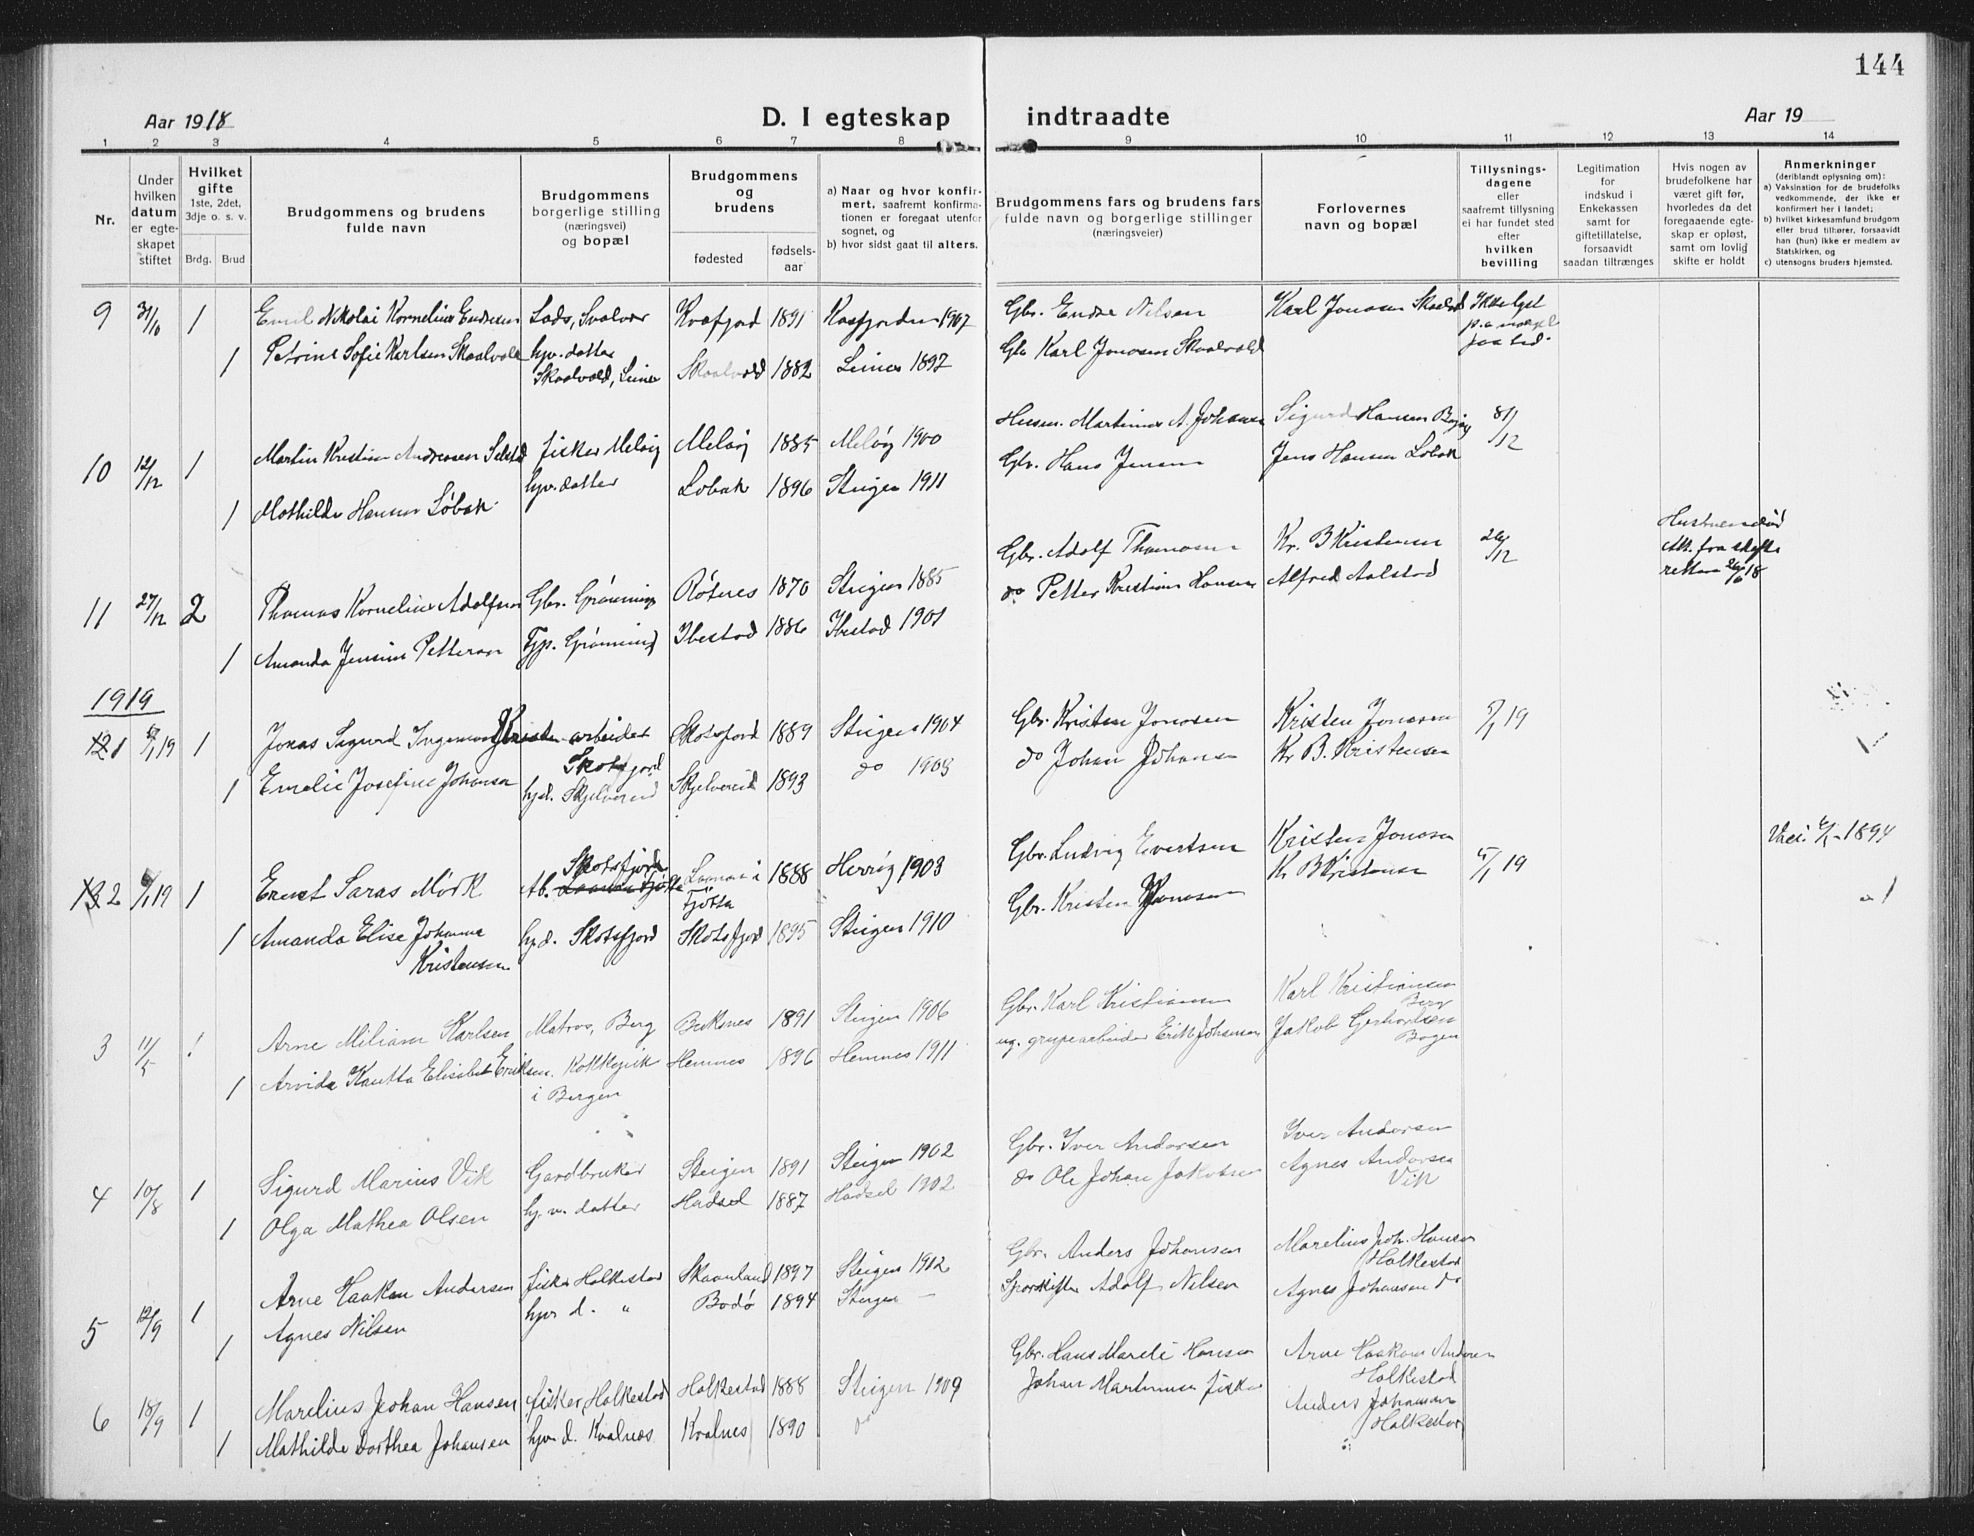 144
Aar 1918
D. I egteskap indtraadte
Aar 19
1 2 3 4 5 6 7 8 9 10 11 12 13 14
Nr.
Under hvilken datum er egteskapet stiftet
Hvilket gifte 1ste, 2det, 3dje o. s. v.
Brdg. Brud
Brudgommens og brudens fulde navn
Brudgommens borgerlige stilling (næringsvei) og bopæl
Brudgommens og brudens
fødested
fødselsaar
a) Naar og hvor konfirmert, saafremt konfirmationen er foregaat utenfor sognet, og
b) hvor sidst gaat til alters.
Brudgommens fars og brudens fars fulde navn og borgerlige stillinger (næringsveier)
Forlovernes navn og bopæl
Tillysningsdagene eller saafremt tillysning ei har fundet sted efter hvilken bevilling
Legitimation for indskud i Enkekassen samt for giftetillatelse, forsaavidt saadan tiltrænges
Hvis nogen av brudefolkene har været gift før, hvorledes da det foregaaende egteskap er opløst, samt om lovlig skifte er holdt
Anmerkninger (deriblandt oplysning om):
a) Vaksination for de brudefolks vedkommende, der ikke er konfirmert her i landet;
b) hvilket kirkesamfund brudgom eller brud tilhører, forsaavidt han (hun) ikke er medlem av Statskirken, og
c) utensogns bruders hjemsted.
9 31/10 1 Emil Nikolai Kornelius Endresen Lods, Svolvær Kvæfjord 1891 1907 Gbr. Endre Nilsen Karl Jonasen Skaalvold
1 Petrine Sofie Karlsen Skaalvold hjv. datter Skaalvold, Leines Skaalvold 1882 Leines 1897 Gbr Karl Jonasen Skaalvold
10 12/12 1 Martin Kristian Andreasen Selstad fisker Meløy Meløy 1885 Meløy 1900 Husm. Martinus A. Johansen Sigurd Hansen 8/12
1 Mathilde Hansen Løbak hjv. datter Løbak 1896 Steigen 1911 Gbr. Hans Jensen Jens Hansen Løbak
11 27/12 2 Thomas Kornelius Adolfsen Gbr. Grønning Røtnes 1870 Steigen 1885 Gbr. Adolf Thomasen Kr. B Kristensen 26/12
1 Amanda Jensine Pettersen Tjp. Grønning Ibestad 1886 Ibestad 1901 do Petter Kristian Hansen Alfred Aalstad
1919
1 6/1 19 1 Jonas Sigurd Ingemar Kristensen arbeider Skotsfjord Skotsfjord 1889 Steigen 1904 Gbr. Kristen Jonasen Kristen Jonasen 5/1 19
1 Emelie Josefine Johansen hjd. Skjelvereid Skjelvereid 1893 do 1908 do Johan Johansen Kr B. Kristensen
2 6/1 19 1 Ernst Saras Mørk Ab. Skotsfjord i Tjøtta 1888 Herrøy 1903 Gbr. Ludvig Evertsen Kristen Jonasen 5/1 19
1 Amanda Elise Johanna Kristensen hjd. Skotsfjord Skotsfjord 1895 Steigen 1910 Gbr. Kristen Jonasen Kr B Kristensen
3 11/5 1 Arne Miliam Karlsen Matros, Berg Buksnes 1891 Steigen 1906 Gbr. Karl Kristiansen Karl Kristiansen Berg
1 Arvida Kautta Elisabet Eriksen Kokkepike i Bergen Hemnes 1896 Hemnes 1911 ug. grupearbeider Erik Johansen Jakob Gerhardsen Bogen
4 10/8 1 Sigurd Marius Vik Gaardbruker Steigen 1891 Steigen 1902 Gbr. Iver Andersen Iver Andersen
1 Olga Mathea Olsen hj. v. datter Hadsel 1887 Hadsel 1902 do Ole Johan Jakobsen Agnes Andersen Vik
5 12/9 1 Arne Haakon Andersen fisker Holkestad Skaanland 1897 Steigen 1912 Gbr. Anders Johansen Marelius Joh. Hansen Holkestad
1 Agnes Nilsen hjv d. " Bodø 1894 Steigen — Adolf Nilsen Agnes Johansen do
6 18/9 1 Marelius Johan Hansen fisker Holkestad Holkestad 1888 Steigen 1909 Gbr. Hans Mareli Hansen Arne Haakon Andersen Holkestad
1 Mathilde Dorthea Johansen hjv d. Kvalnes Kvalnes 1890 do Johan Martinusen fisker Anders Johansen Holkestad